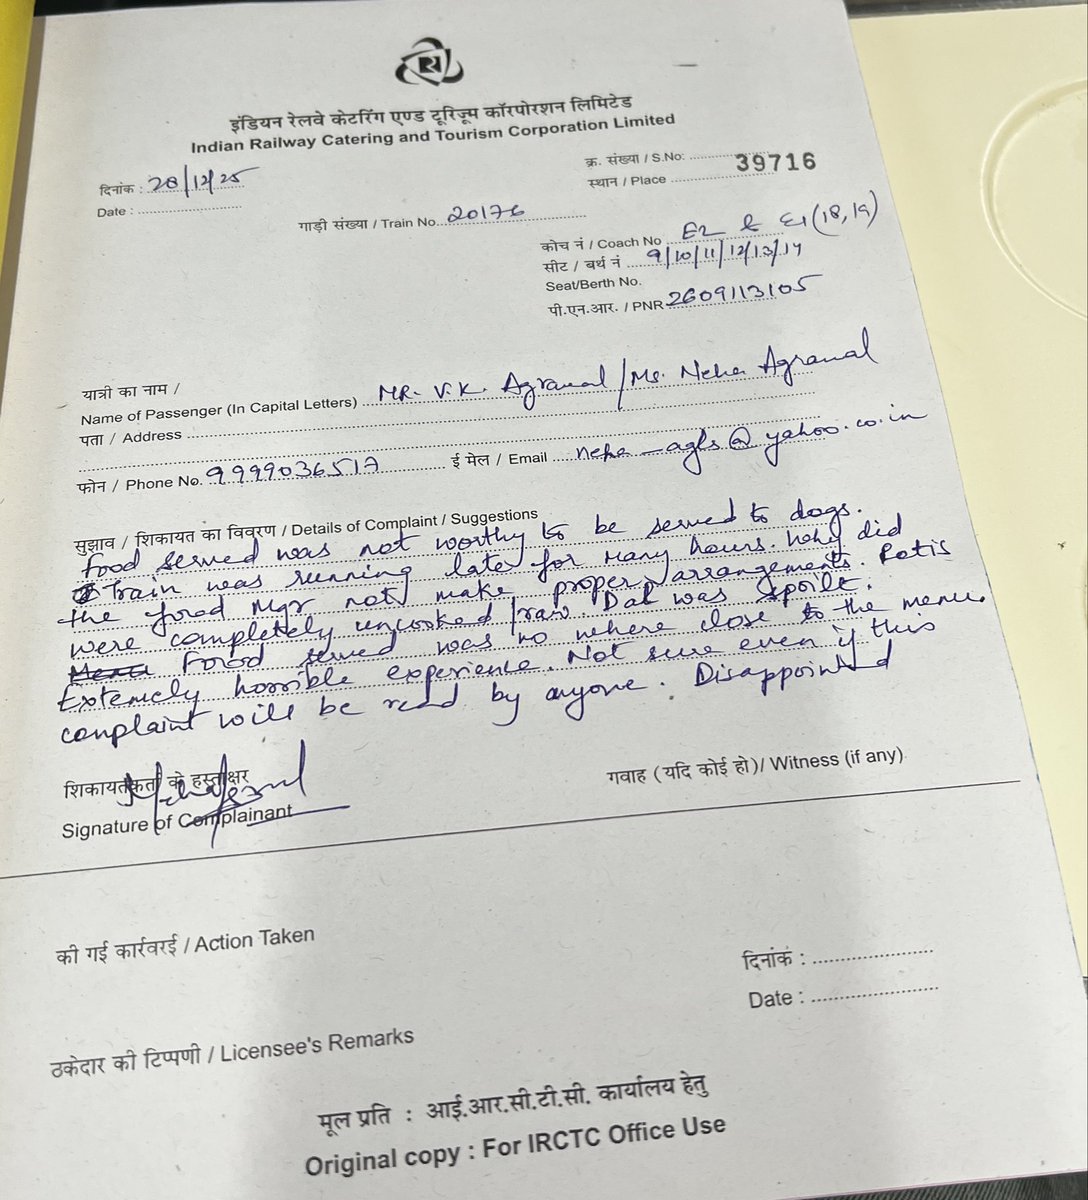 इंडियन रेलवे केटरिंग एण्ड टूरिज़्म कॉरपोरेशन लिमिटेड
Indian Railway Catering and Tourism Corporation Limited
दिनांक : 28/12/25
Date : ....................
क्र. संख्या / S.No: .............. 39716
स्थान / Place ....................
गाड़ी संख्या / Train No. 20176
कोच नं / Coach No E2 & E1 (18,19)
सीट / बर्थ नं 9/10/11/12/13/14
Seat/Berth No.
पी.एन.आर. / PNR 2609113105
यात्री का नाम /
Name of Passenger (In Capital Letters) MR. V.K. Agrawal / Ms. Neha Agrawal
पता / Address
फोन / Phone No. 9999036517 ई मेल / Email neha_agls@yahoo.co.in
सुझाव / शिकायत का विवरण / Details of Complaint / Suggestions
Food served was not worthy to be served to dogs.
Train was running late for many hours. Why did
the food Mgr not make proper arrangements. Rotis
were completely uncooked / raw. Dal was spoilt.
Food served was no where close to the menu.
Extemely horrible experience. Not sure even if this
complaint will be read by anyone. Disappointed
शिकायतकर्ता के हस्ताक्षर
Signature of Complainant
गवाह (यदि कोई हो)/ Witness (if any)
की गई कार्रवरई / Action Taken
दिनांकं : ....................
Date : ....................
ठकेदार की टिप्पणी / Licensee's Remarks
मूल प्रति : आई.आर.सी.टी.सी. कार्यालय हेतु
Original copy : For IRCTC Office Use